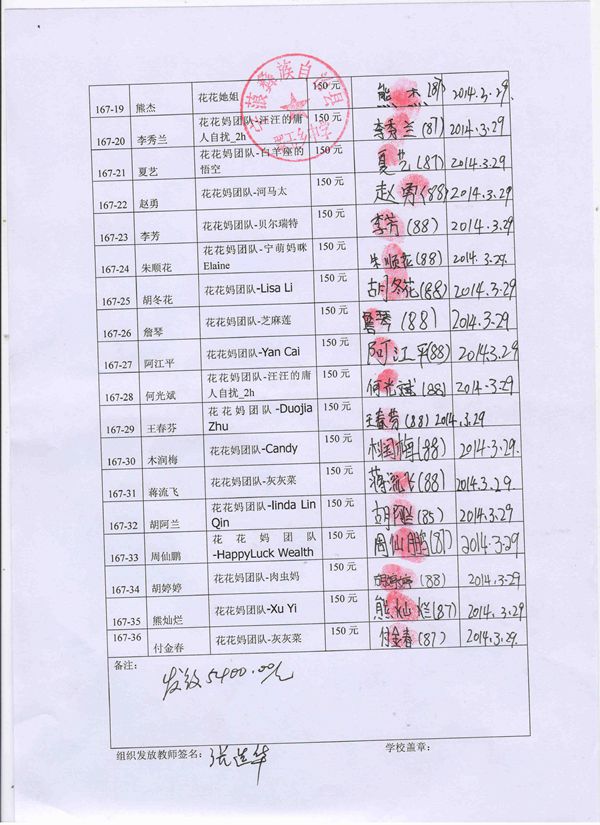 彝族自治县
167-19 熊杰 花花她姐 150 元 熊杰 (87) 2014.3.29.
167-20 李秀兰 花花妈团队-汪汪的庸人自扰_2h 150 元 李秀兰 (87) 2014.3.29
167-21 夏艺 花花妈团队-白羊座的悟空 150 元 夏艺 (87) 2014.3.29
167-22 赵勇 花花妈团队-河马太 150 元 赵勇 (88) 2014.3.29
167-23 李芳 花花妈团队-贝尔瑞特 150 元 李芳 (88) 2014.3.29
167-24 朱顺花 花花妈团队-宁萌妈咪 Elaine 150 元 朱顺花 (88) 2014.3.29.
167-25 胡冬花 花花妈团队-Lisa Li 150 元 胡冬花 (88) 2014.3.29
167-26 詹琴 花花妈团队-芝麻莲 150 元 詹琴 (88) 2014.3.29
167-27 阿江平 花花妈团队-Yan Cai 150 元 阿江平 (88) 2014.3.29
167-28 何光斌 花花妈团队-汪汪的庸人自扰_2h 150 元 何光斌 (88) 2014.3.29
167-29 王春芬 花花妈团队-Duojia Zhu 150 元 王春芬 (88) 2014.3.29
167-30 木润梅 花花妈团队-Candy 150 元 木润梅 (88) 2014.3.29.
167-31 蒋流飞 花花妈团队-灰灰菜 150 元 蒋流飞 (88) 2014.3.29.
167-32 胡阿兰 花花妈团队-linda Lin Qin 150 元 胡阿兰 (85) 2014.3.29
167-33 周仙鹏 花花妈团队-HappyLuck Wealth 150 元 周仙鹏 (87) 2014.3.29
167-34 胡婷婷 花花妈团队-肉虫妈 150 元 胡婷婷 (88) 2014.3.29
167-35 熊灿烂 花花妈团队-Xu Yi 150 元 熊灿烂 (87) 2014.3.29
167-36 付金春 花花妈团队-灰灰菜 150 元 付金春 (87) 2014.3.29.
备注：
发放5400.00元
组织发放教师签名： 学校盖章：